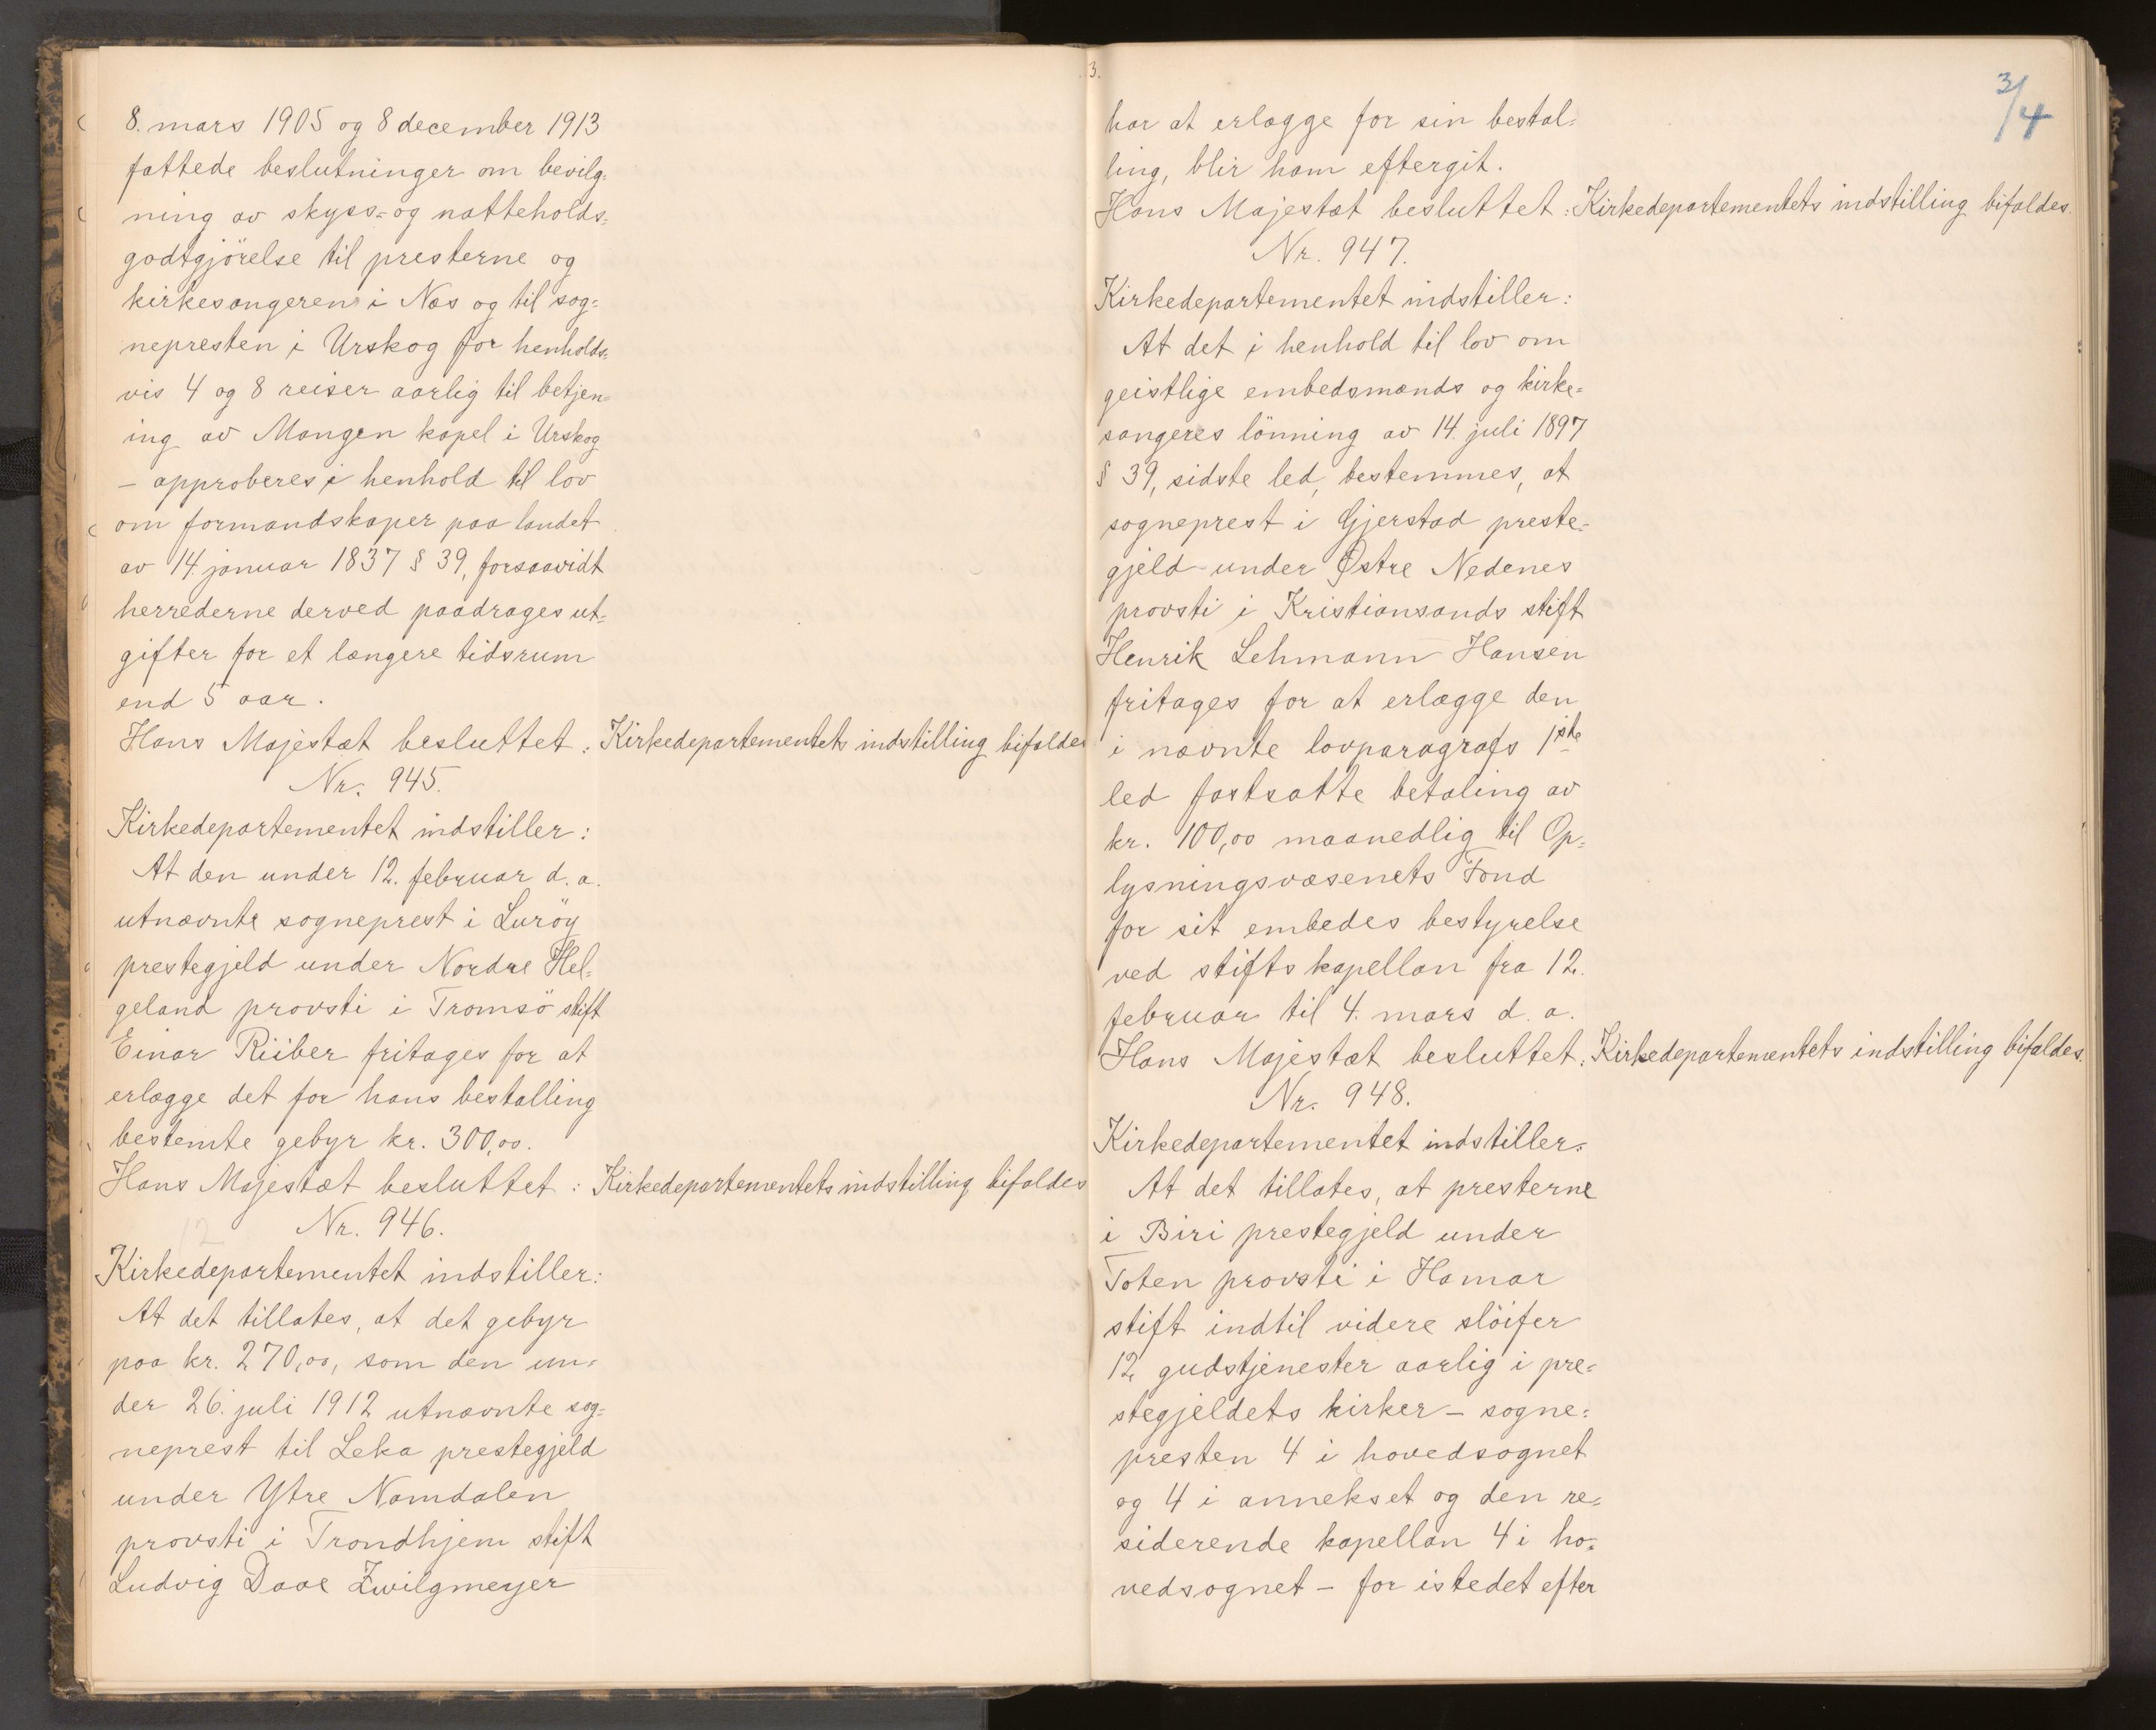 8. mars 1905 og 8 december 1913
fattede beslutninger om bevilg=
ning av skyss= og natteholds=
godtgjörelse til presterne og
kirkesangeren i Næs og til sog=
nepresten i Urskog for henholds=
vis 4 og 8 reiser aarlig til betjen=
ing av Mangen kapel i Urskog
– approberes i henhold til lov
om formandskaper paa landet
av 14. januar 1837 § 39, forsaavidt
herrederne derved paadrages ut=
gifter for et længere tidsrum
end 5 aar.
Hans Majestæt besluttet: Kirkedepartementets indstilling bifaldes
Nr. 945.
Kirkedepartementet indstiller:
At den under 12. februar d. a.
utnævnte sogneprest i Luröy
prestegjeld under Nordre Hel=
geland provsti i Tromsö stift
Einar Riiber fritages for at
erlægge det for hans bestalling
bestemte gebyr kr. 300,00.
Hans Majestæt besluttet: Kirkedepartementets indstilling bifaldes
12
Nr. 946.
Kirkedepartementet indstiller:
At det tillates, at det gebyr
paa kr. 270,00, som den un=
der 26. juli 1912 utnævnte sog=
neprest til Leka prestegjeld
under Ytre Namdalen
provsti i Trondhjem stift
Ludvig Daae Zwilgmeyer
3.
3/4
har at erlægge for sin bestal=
ling, blir ham eftergit.
Hans Majestæt besluttet: Kirkedepartementets indstilling bifaldes.
Nr. 947.
Kirkedepartementet indstiller:
At det i henhold til lov om
geistlige embedsmænds og kirke=
sangeres lönning av 14. juli 1897
§ 39, sidste led, bestemmes, at
sogneprest i Gjerstad preste=
gjeld under Østre Nedenes
provsti i Kristiansands stift
Henrik Lehmann Hansen
fritages for at erlægge den
i nævnte lovparagrafs 1ste
led fastsatte betaling av
kr. 100,00 maanedlig til Op=
lysningsvæsenets Fond
for sit embedes bestyrelse
ved stiftskapellan fra 12.
februar til 4. mars d. a.
Hans Majestæt besluttet: Kirkedepartementets indstilling bifaldes.
Nr. 948.
Kirkedepartementet indstiller:
At det tillates, at presterne
i Biri prestegjeld under
Toten provsti i Hamar
stift indtil videre slöifer
12 gudstjenester aarlig i pre=
stegjeldets kirker – sogne=
presten 4 i hovedsognet
og 4 i annekset og den re=
siderende kapellan 4 i ho=
vedsognet – for istedet efter